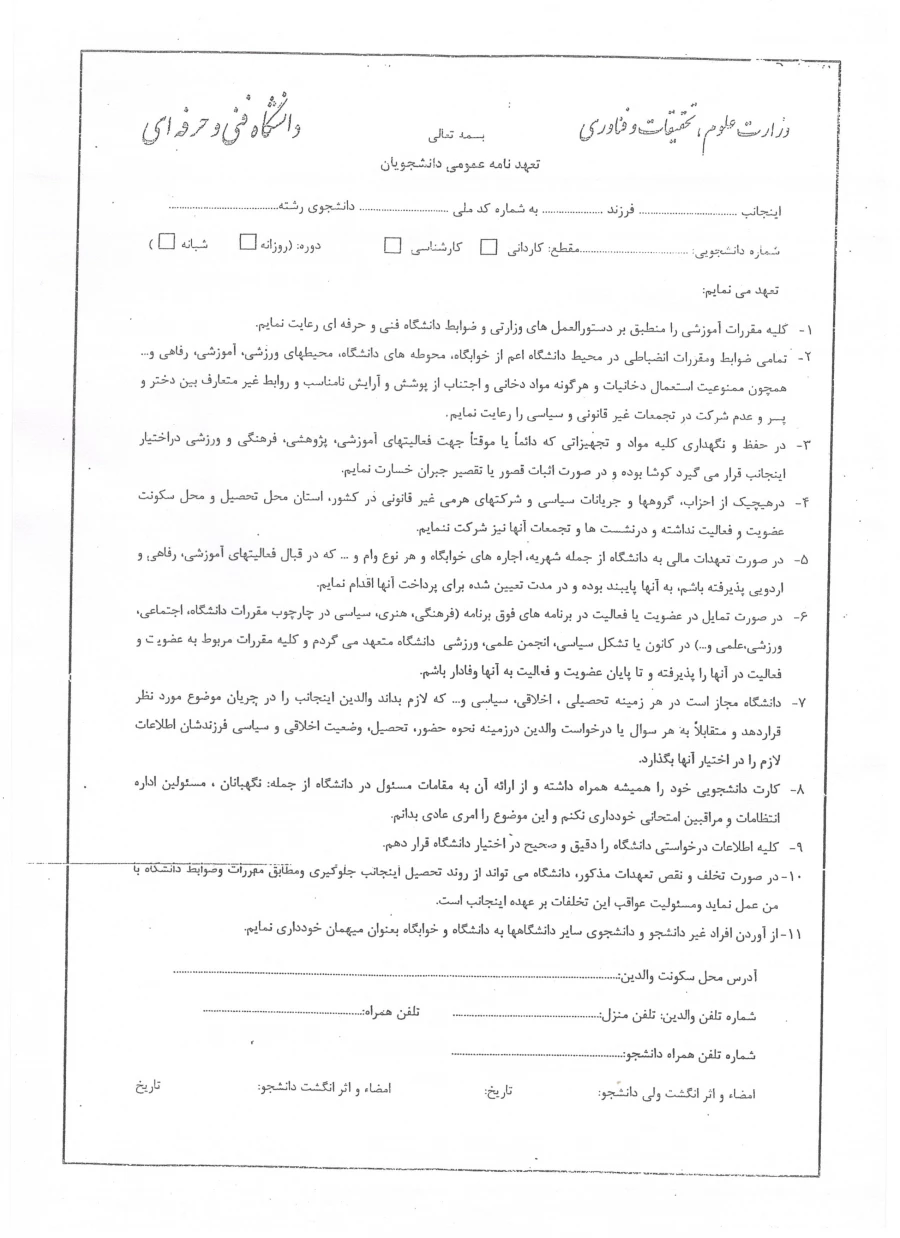 وزارت علوم، تحقیقات و فناوری
بسمه تعالی
دانشگاه فنی و حرفه ای
تعهد نامه عمومی دانشجویان
اینجانب .............................. فرزند .................. به شماره کد ملی ........................... دانشجوی رشته..................................
شماره دانشجویی: ..................................مقطع: کاردانی □ کارشناسی □ دوره: (روزانه □ شبانه □ )
تعهد می نمایم:
۱- کلیه مقررات آموزشی را منطبق بر دستورالعمل های وزارتی و ضوابط دانشگاه فنی و حرفه ای رعایت نمایم.
۲- تمامی ضوابط ومقررات انضباطی در محیط دانشگاه اعم از خوابگاه، محوطه های دانشگاه، محیطهای ورزشی، آموزشی، رفاهی و...
همچون ممنوعیت استعمال دخانیات و هرگونه مواد دخانی و اجتناب از پوشش و آرایش نامناسب و روابط غیر متعارف بین دختر و
پسر و عدم شرکت در تجمعات غیر قانونی و سیاسی را رعایت نمایم.
۳- در حفظ و نگهداری کلیه مواد و تجهیزاتی که دائماً یا موقتاً جهت فعالیتهای آموزشی، پژوهشی، فرهنگی و ورزشی دراختیار
اینجانب قرار می گیرد کوشا بوده و در صورت اثبات قصور یا تقصیر جبران خسارت نمایم.
۴- درهیچیک از احزاب، گروهها و جریانات سیاسی و شرکتهای هرمی غیر قانونی در کشور، استان محل تحصیل و محل سکونت
عضویت و فعالیت نداشته و درنشست ها و تجمعات آنها نیز شرکت ننمایم.
۵- در صورت تعهدات مالی به دانشگاه از جمله شهریه، اجاره های خوابگاه و هر نوع وام و ... که در قبال فعالیتهای آموزشی، رفاهی و
اردویی پذیرفته باشم، به آنها پایبند بوده و در مدت تعیین شده برای پرداخت آنها اقدام نمایم.
۶- در صورت تمایل در عضویت یا فعالیت در برنامه های فوق برنامه (فرهنگی، هنری، سیاسی در چارچوب مقررات دانشگاه، اجتماعی،
ورزشی،علمی و...) در کانون یا تشکل سیاسی، انجمن علمی، ورزشی دانشگاه متعهد می گردم و کلیه مقررات مربوط به عضویت و
فعالیت در آنها را پذیرفته و تا پایان عضویت و فعالیت به آنها وفادار باشم.
۷- دانشگاه مجاز است در هر زمینه تحصیلی ، اخلاقی، سیاسی و... که لازم بداند والدین اینجانب را در جریان موضوع مورد نظر
قراردهد و متقابلاً به هر سوال یا درخواست والدین درزمینه نحوه حضور، تحصیل، وضعیت اخلاقی و سیاسی فرزندشان اطلاعات
لازم را در اختیار آنها بگذارد.
۸- کارت دانشجویی خود را همیشه همراه داشته و از ارائه آن به مقامات مسئول در دانشگاه از جمله: نگهبانان ، مسئولین اداره
انتظامات و مراقبین امتحانی خودداری نکنم و این موضوع را امری عادی بدانم.
۹- کلیه اطلاعات درخواستی دانشگاه را دقیق و صحیح در اختیار دانشگاه قرار دهم.
۱۰- در صورت تخلف و نقص تعهدات مذکور، دانشگاه می تواند از روند تحصیل اینجانب جلوگیری ومطابق مقررات وضوابط دانشگاه با
من عمل نماید ومسئولیت عواقب این تخلفات بر عهده اینجانب است.
۱۱- از آوردن افراد غیر دانشجو و دانشجوی سایر دانشگاهها به دانشگاه و خوابگاه بعنوان میهمان خودداری نمایم.
آدرس محل سکونت والدین:..............................................................................
شماره تلفن والدین: تلفن منزل:.......................................... تلفن همراه:..........................................
شماره تلفن همراه دانشجو:..................................................
امضاء و اثر انگشت ولی دانشجو: تاریخ: امضاء و اثر انگشت دانشجو: تاریخ